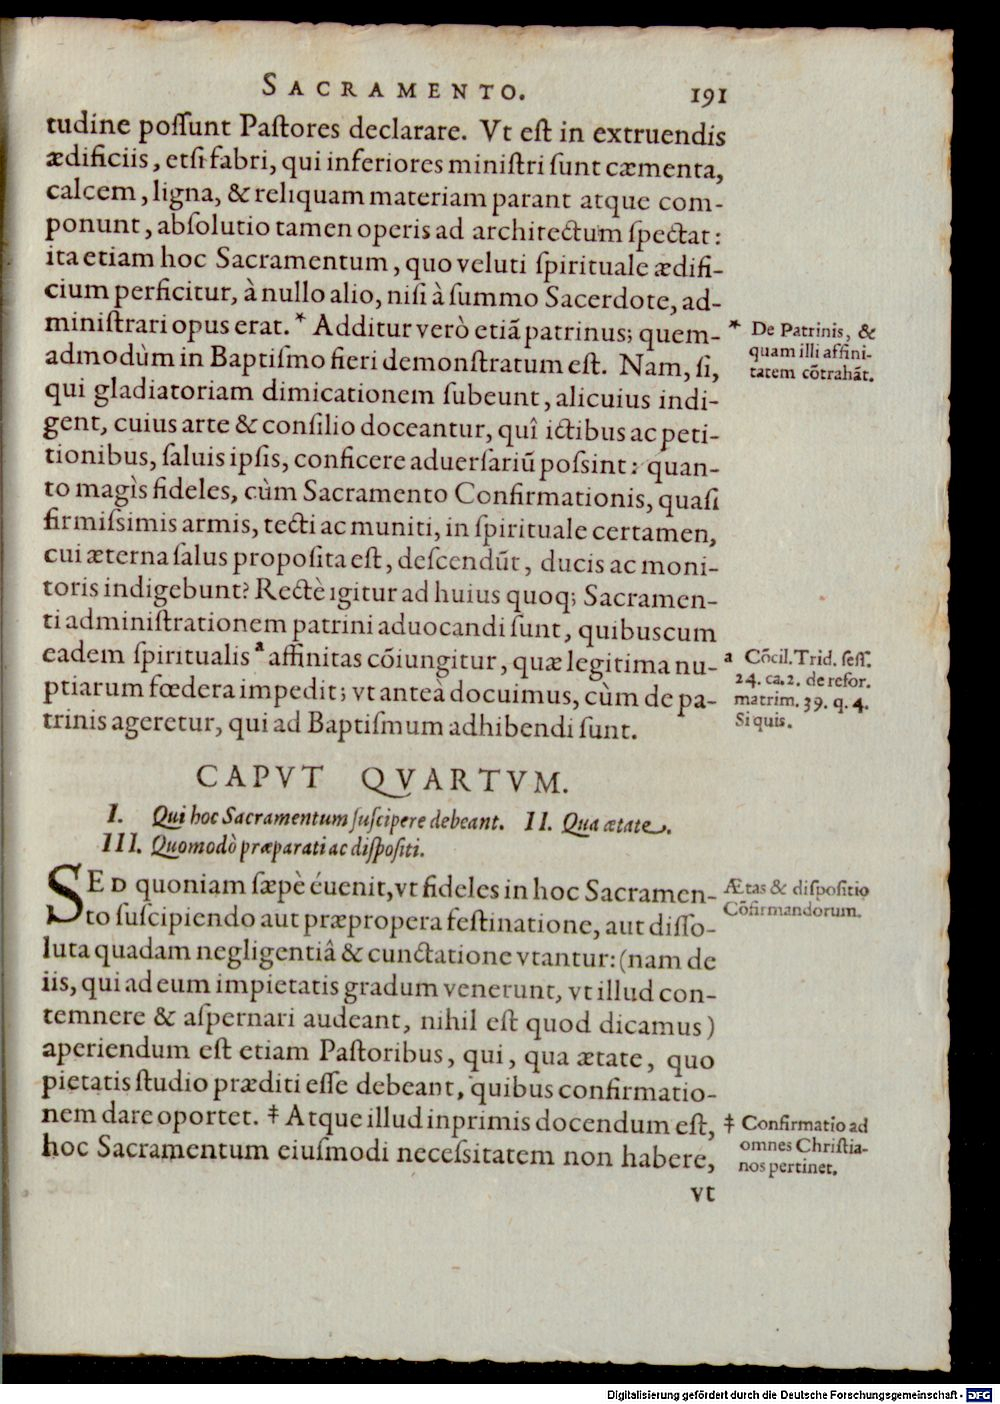 SACRAMENTO. 191
tudine poſſunt Paſtores declarare. Vt eſt in extruendis
ædificiis, etſi fabri, qui inferiores miniſtri ſunt cæmenta,
calcem, ligna, & reliquam materiam parant atque com-
ponunt, abſolutio tamen operis ad architectum ſpectat:
ita etiam hoc Sacramentum, quo veluti ſpirituale ædifi-
cium perficitur, à nullo alio, niſi à ſummo Sacerdote, ad-
miniſtrari opus erat. * Additur verò etiã patrinus; quem-
admodùm in Baptiſmo fieri demonſtratum eſt. Nam, ſi,
qui gladiatoriam dimicationem ſubeunt, alicuius indi-
gent, cuius arte & conſilio doceantur, quî ictibus ac peti-
tionibus, ſaluis ipſis, conficere aduerſariũ poſsint: quan-
to magìs fideles, cùm Sacramento Confirmationis, quaſi
firmiſsimis armis, tecti ac muniti, in ſpirituale certamen,
cui æterna ſalus propoſita eſt, deſcendũt, ducis ac moni-
toris indigebunt? Rectè igitur ad huius quoq; Sacramen-
ti adminiſtrationem patrini aduocandi ſunt, quibuscum
eadem ſpiritualis ª affinitas cõiungitur, quæ legitima nu-
ptiarum fœdera impedit; vt anteà docuimus, cùm de pa-
trinis ageretur, qui ad Baptiſmum adhibendi ſunt.
* De Patrinis, &
quam illi affini-
tatem cõtrahãt.
ª Cõcil. Trid. ſeſſ.
24. ca. 2. de refor.
matrim. 39. q. 4.
Si quis.
CAPVT QVARTVM.
I. Qui hoc Sacramentum ſuſcipere debeant. II. Qua ætate.
III. Quomodò præparati ac diſpoſiti.
SED quoniam ſæpè éuenit, vt fideles in hoc Sacramen-
to ſuſcipiendo aut præpropera feſtinatione, aut diſſo-
luta quadam negligentiâ & cunctatione vtantur: (nam de
iis, qui ad eum impietatis gradum venerunt, vt illud con-
temnere & aſpernari audeant, nihil eſt quod dicamus)
aperiendum eſt etiam Paſtoribus, qui, qua ætate, quo
pietatis ſtudio præditi eſſe debeant, quibus confirmatio-
nem dare oportet. ‡ Atque illud inprimis docendum eſt,
hoc Sacramentum eiuſmodi neceſsitatem non habere,
vt
Ætas & diſpoſitio
Cõfirmandorum.
‡ Confirmatio ad
omnes Chriſtia-
nos pertinet.
Digitalisierung gefördert durch die Deutsche Forschungsgemeinschaft - DFG